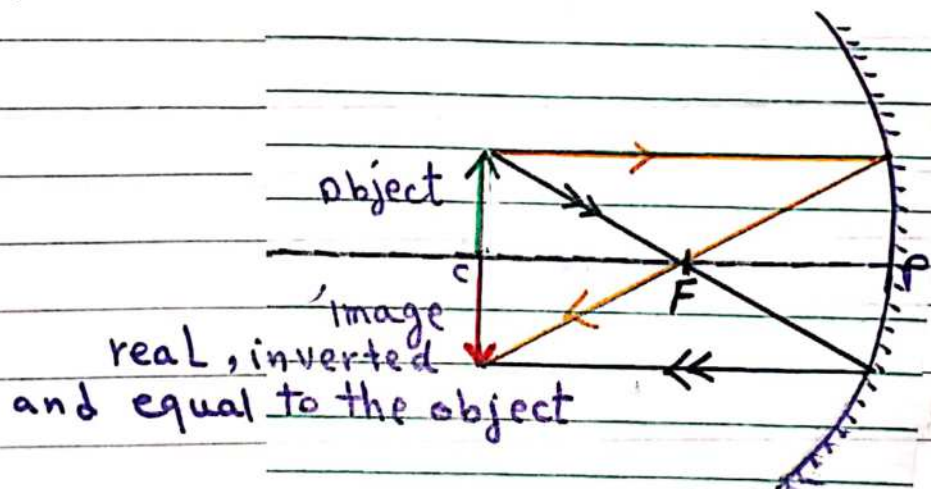 object
C
F
P
image
real, inverted
and equal to the object